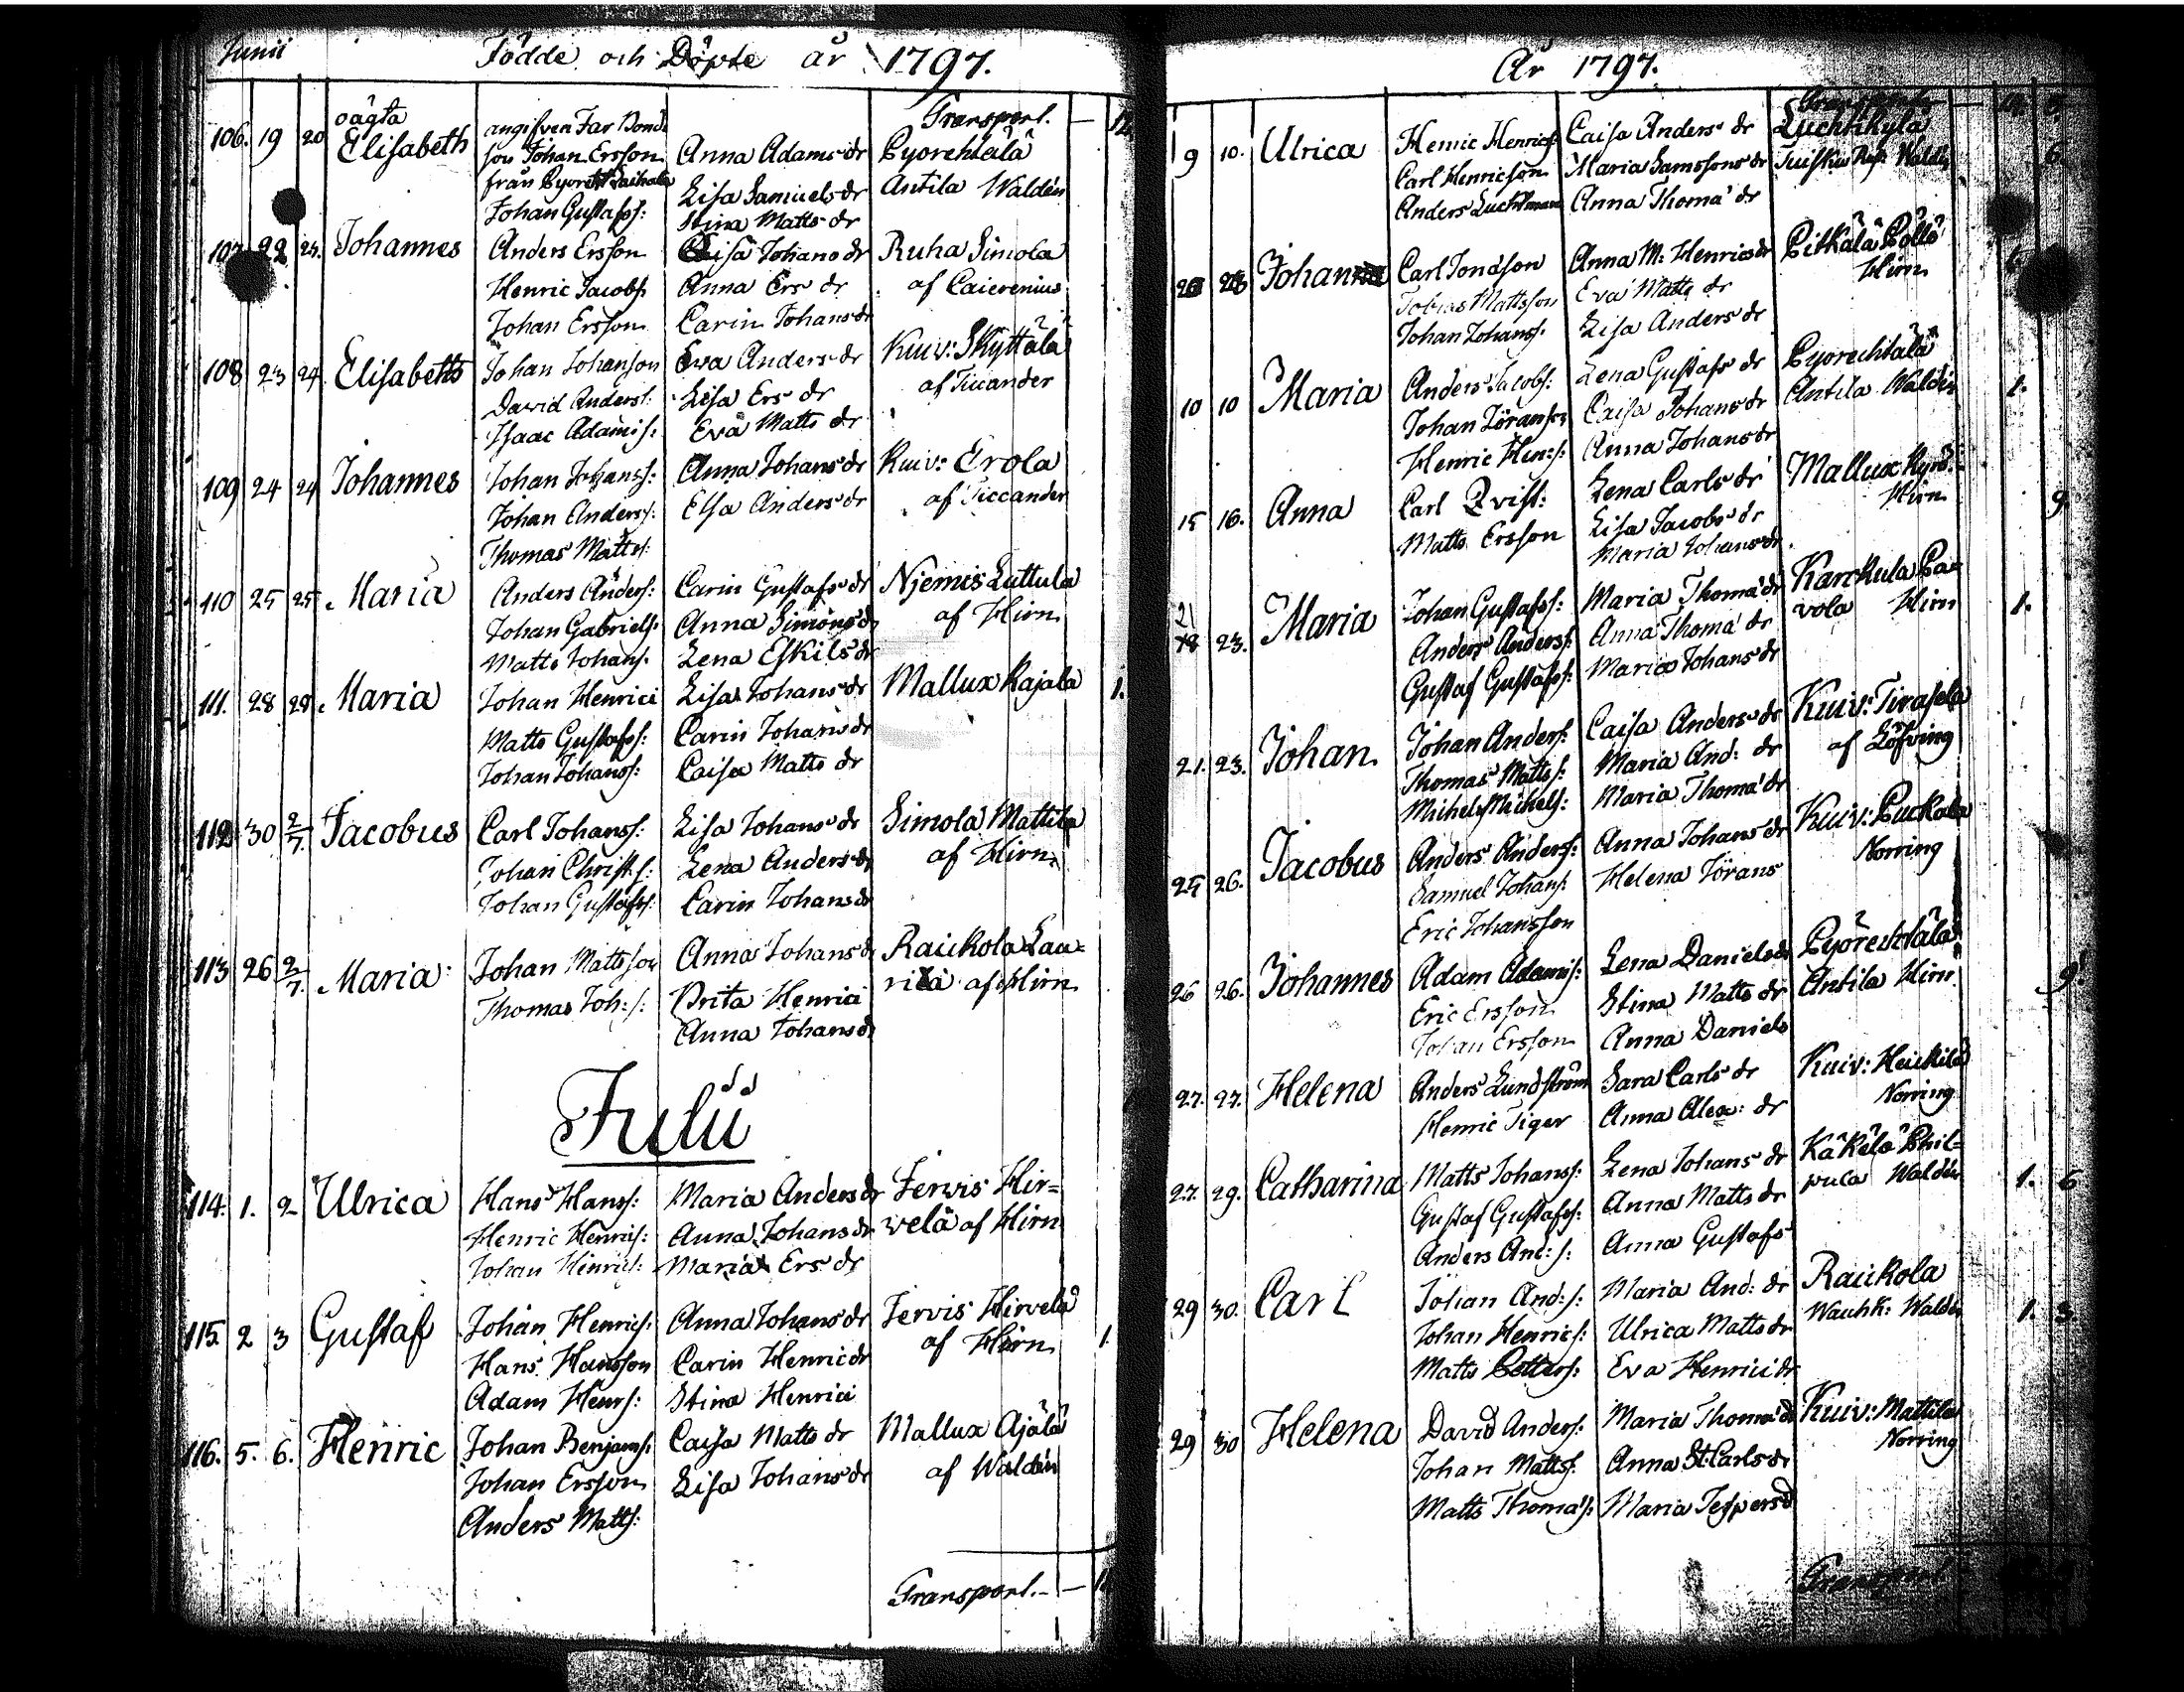 Junii Födde och Döpte år 1797.
oägta angifven Far Bond Transport. — 12
106. 19 20 Elisabeth son Johan Ersson Anna Adams dr Pyorehtälä
från Pyoreht Lisa Samuels dr Antila Waldén
Johan Gustafss: Stina Matts dr
107 22 24. Johannes Anders Ersson Caisa Johans dr Ruha Simola
Henric Jacobs: Anna Ers dr af Caierenius
Johan Ersson Carin Johans dr
108 23 24 Elisabeth Johan Johanson Eva Anders dr Kuiv: Skyttälä
David Anders: Lisa Ers dr af Ticcander
Isaac Adams: Eva Matts dr
109 24 24 Johannes Johan Johanss: Anna Johans dr Kuiv: Erola
Johan Anders: Elsa Anders dr af Ticcander
Thomas Matts:
110 25 25 Maria Anders Anders: Carin Gustafs dr Njemis Luttula
Johan Gabriels: Anna Simons dr af Hirn
Matts Johans: Lena Eskils dr
111. 28 29. Maria Johan Henrici Lisa Johans dr Mallux Rajala 1.
Matts Gustafss: Carin Johans dr
Johan Johanss: Caisa Matts dr
112 30 2/7. Jacobus Carl Johanss: Lisa Johans dr Simola Mattila
Johan Christ s: Lena Anders dr af Hirn
Johan Gustafss: Carin Johans dr
113 26 2/7. Maria Johan Mattsson Anna Johans dr Raukola Lau=
Thomas Joh: s: Brita Henrici rila af Hirn
Anna Johans dr
Julii
114. 1. 2 Ulrica Hans Hanss: Maria Anders dr Jervis Hir=
Henric Henrics: Anna Johans dr welä af Hirn
Johan Hinrics: Maria Ers dr
115. 2 3 Gustaf Johan Henrics: Anna Johans dr Jervis Hirvelä
Hans Hansson Carin Henric dr af Hirn 1.
Adam Henrs: Stina Henrici
116. 5. 6. Henric Johan Benjams: Caisa Matts dr Mallux Ajälä
Johan Ersson Lisa Johans dr af Waldén
Anders Matts:
Transport. —
År 1797.
9 10. Ulrica Henric Henrics: Caisa Anders dr Luchtikylä
Carl Henricson Maria Samssons dr Waldén 6.
Anders Luchtman Anna Thoma dr
26 28 Johannes Carl Jonasson Anna M: Henrics dr Pitkälä Pöllö
Tobias Mattsson Eva Matts dr Hirn
Johan Johanss: Lisa Anders dr
10 10 Maria Anders Jacobs: Lena Gustafs dr Pyorechtälä
Johan Jöranson Caisa Johans dr Antila Waldén 1.
Henric Hen: s: Anna Johans dr
15 16. Anna Carl Qvist: Lena Carls dr Mallux
Matts Ersson Lisa Jacobs dr Hirn 9.
Maria Johans dr
21
18 23. Maria Johan Gustafss: Maria Thoma dr Karckula Pa=
Anders Anders: Anna Thoma dr vola Hirn 1.
Gustaf Gustafss: Maria Johans dr
21. 23. Johan Johan Anders: Caisa Anders dr Kuiv: Tirasela
Thomas Matts: Maria And: dr af Löfving
Michels Michels: Maria Thoma dr
25 26. Jacobus Anders Anders: Anna Johans dr Kuiv: Puckala
Samuel Johans: Helena Jörans Norring
Eric Johansson
26 26. Johannes Adam Adams: Lena Daniels dr Pyörechtälä
Eric Ersson Stina Matts dr Antila Hirn 9.
Johan Ersson Anna Daniels
27. 27. Helena Anders Lundström Sara Carls dr Kuiv: Heickilä
Henric Tiger Anna Alex: dr Norring
27. 29. Catharina Matts Johanss: Lena Johans dr Käkelä Phil=
Gustaf Gustafss: Anna Matts dr pula Waldén 1. 6
Anders And: s: Anna Gustafs
29 30. Carl Johan And: s: Maria And: dr Raukola
Johan Henrics: Ulrica Matts dr Wauhk: Waldén 1. 3.
Matts Petters: Eva Henrici dr
29 30 Helena David Anders: Maria Thoma dr Kuiv: Mattila
Johan Matts: Anna St: Carls dr Norring
Matts Thomas: Maria Jespers d
Transport